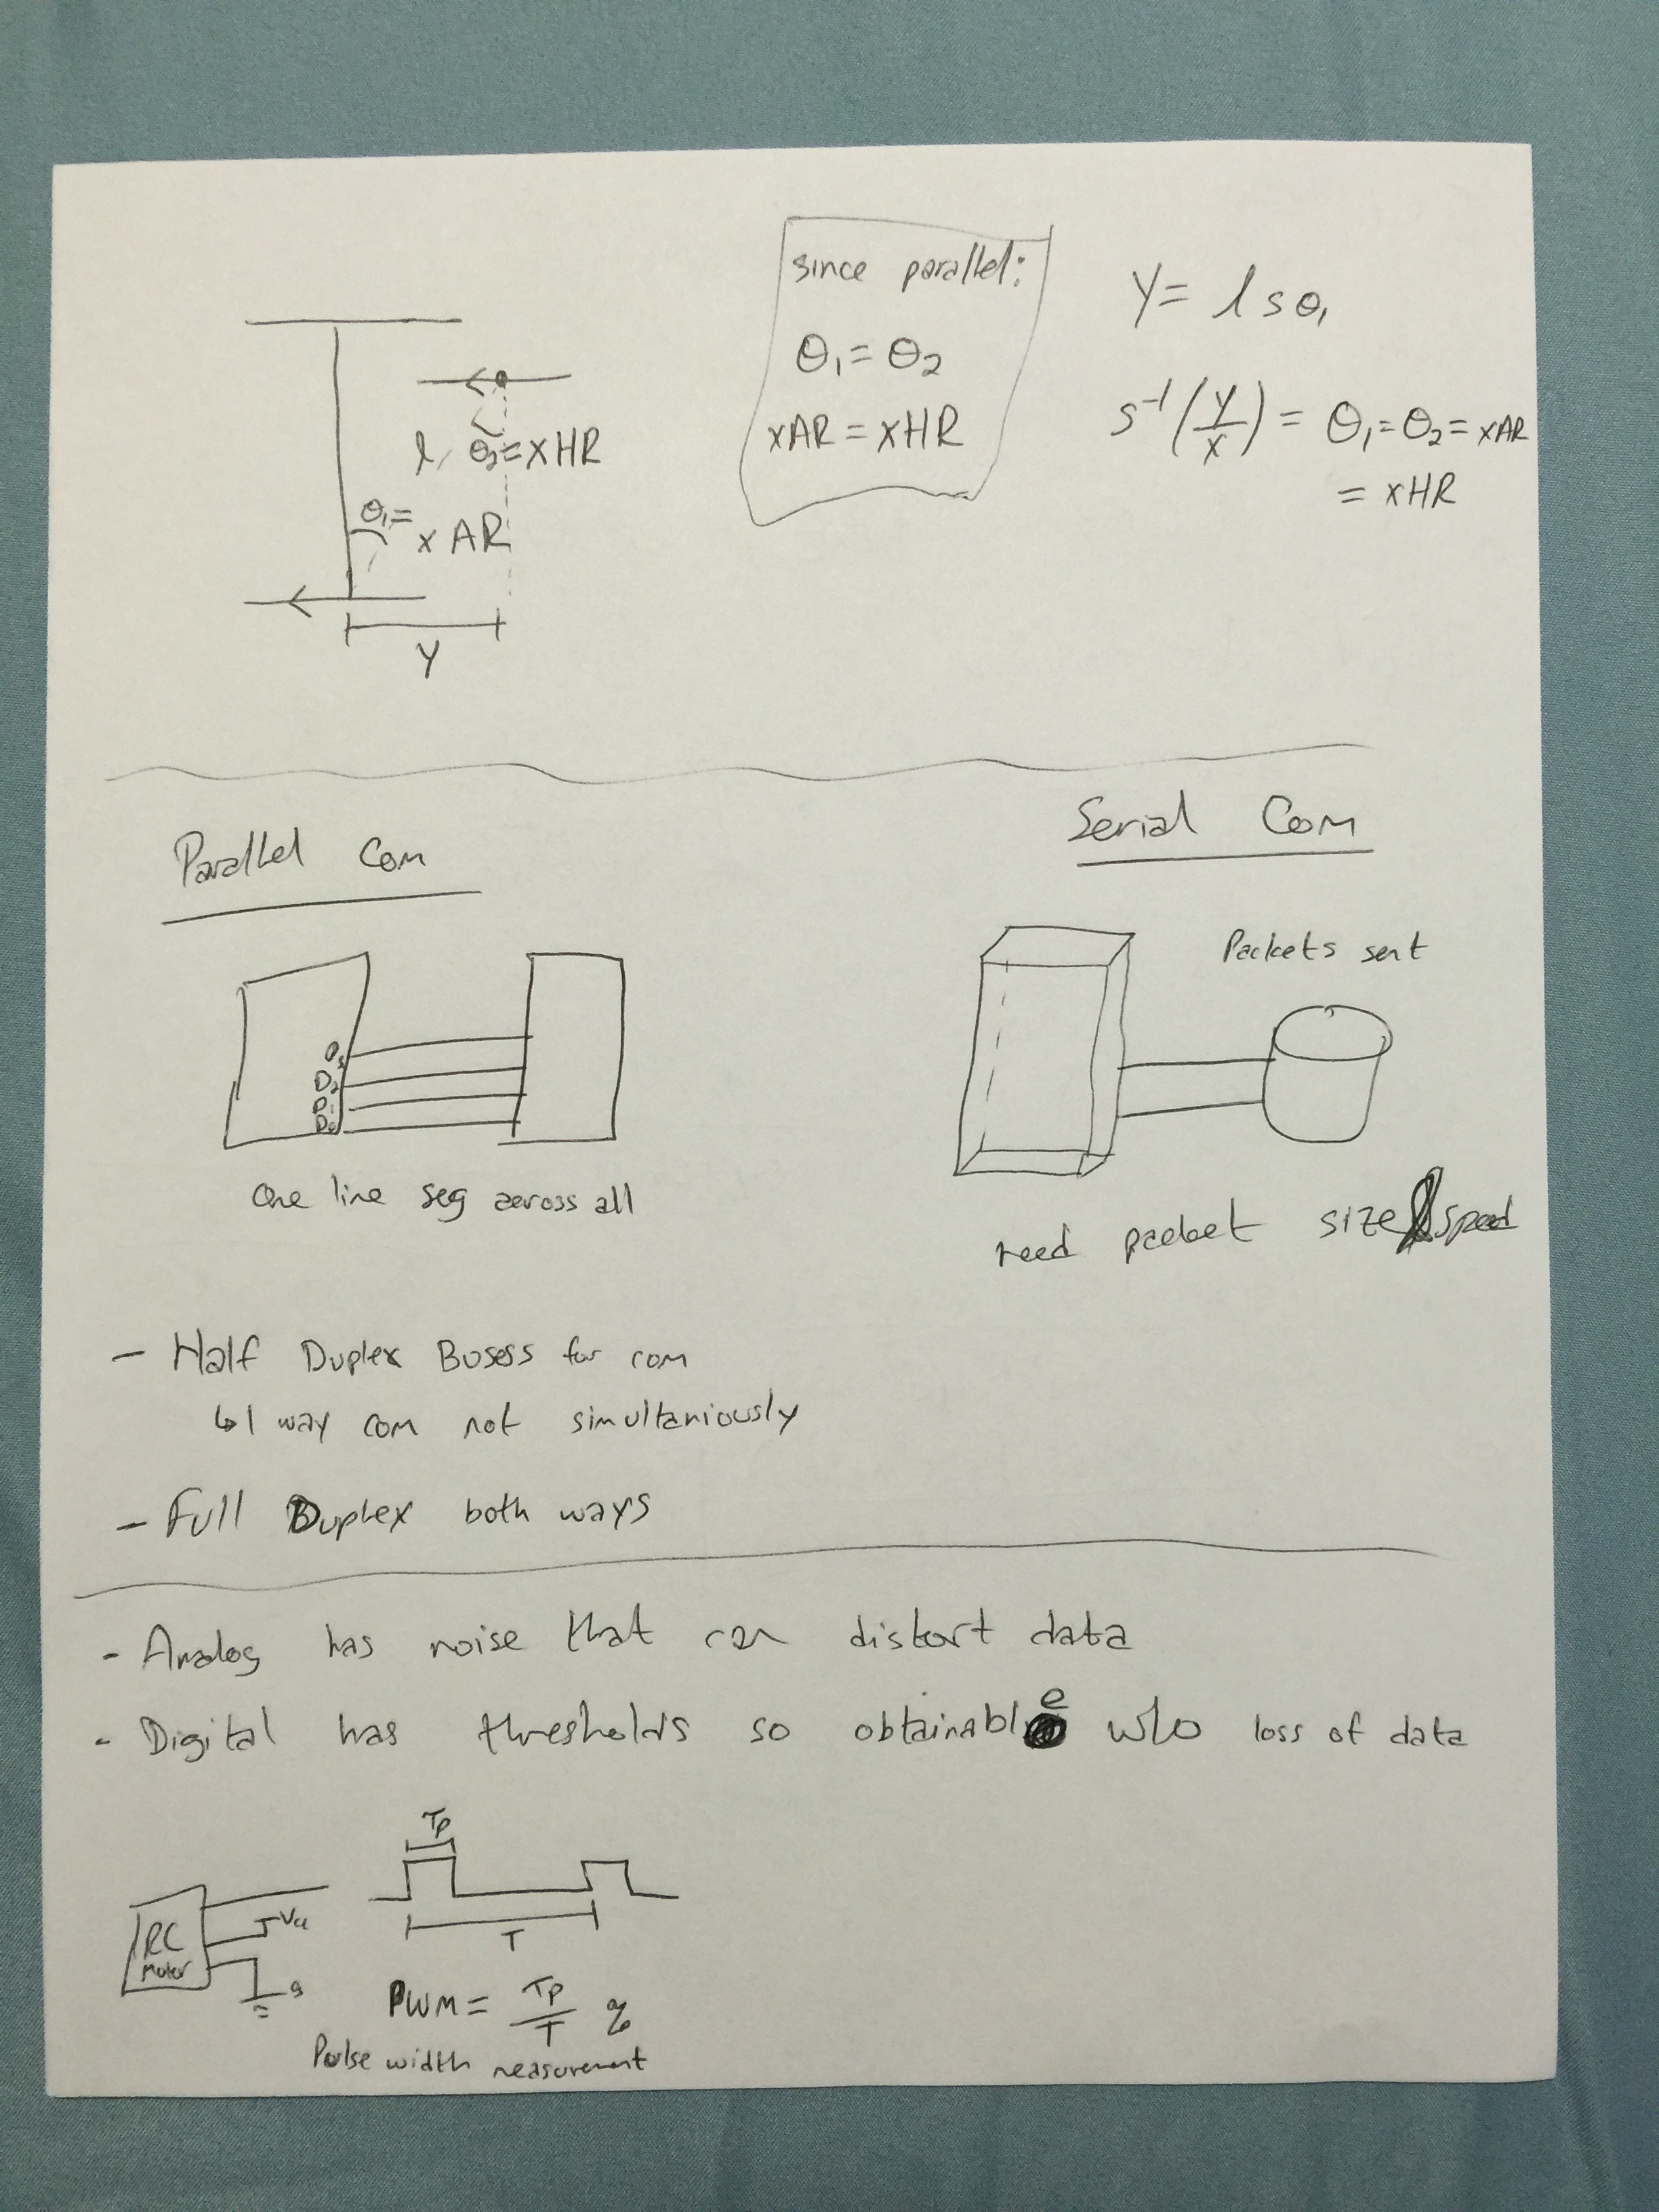 since parallel:
θ₁ = θ₂
xAR = xHR
Y = l s θ₁
s⁻¹(y/x) = θ₁ = θ₂ = xAR
= xHR
l θ₂ = xHR
θ₁ =
xAR
Y
Parallel Com
Serial Com
Packets sent
D₃
D₂
D₁
D₀
One line seg across all
need packet size speed
- Half Duplex Busess for com
↳ 1 way com not simultaniously
- Full Duplex both ways
- Analog has noise that can distort data
- Digital has thresholds so obtainable w/o loss of data
Tp
T
RC
Motor
PWM = Tp/T %
Pulse width measurement